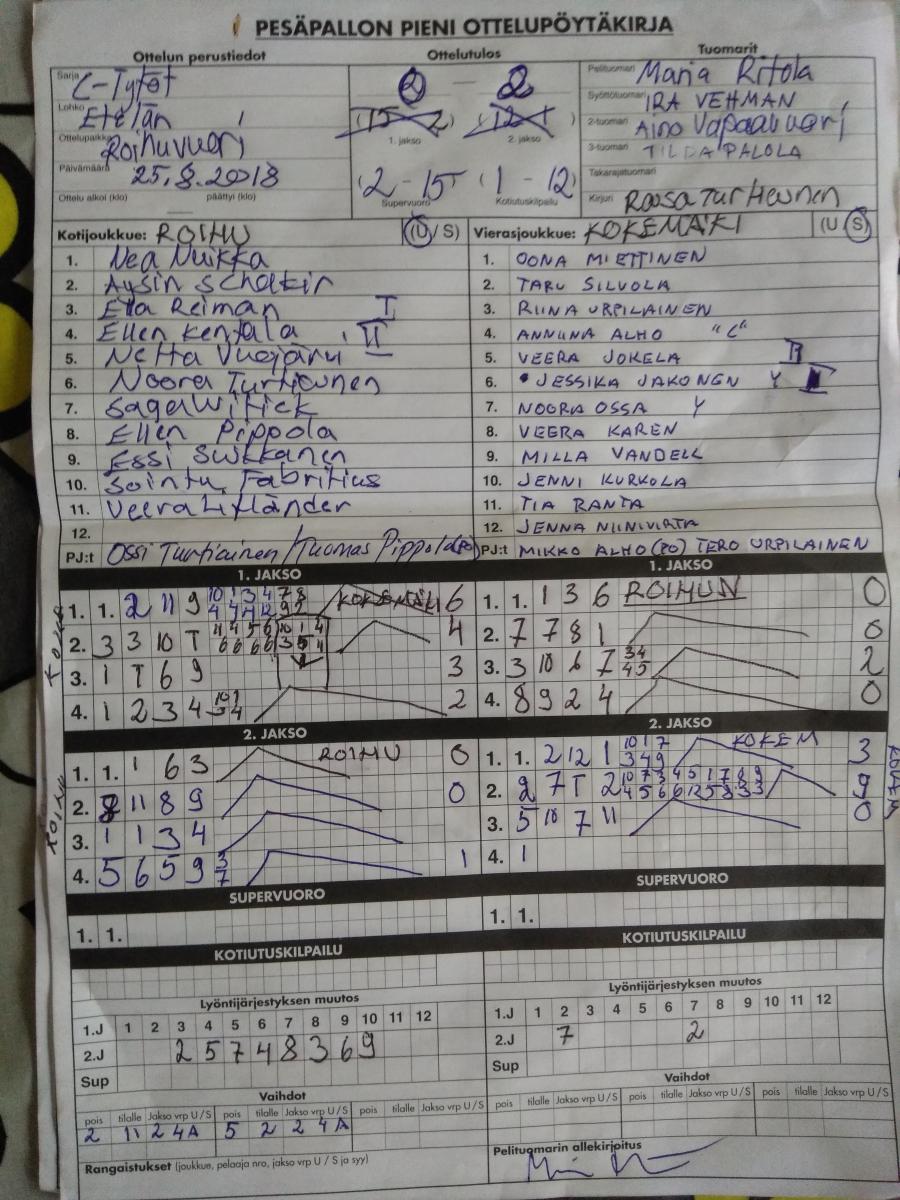 PESÄPALLON PIENI OTTELUPÖYTÄKIRJA
Ottelun perustiedot
Ottelutulos
Tuomarit
Sarja C-Tytöt
Lohko Etelän
Ottelupaikka Roihuvuori
Päivämäärä 25.8.2018
Ottelu alkoi (klo) päättyi (klo)
0 - 2
(15 - 2) (12 - 1)
1. jakso 2. jakso
(2 - 15) (1 - 12)
Supervuoro Kotiutuskilpailu
Pelituomari Maria Ritola
Syöttötuomari IRA VEHMAN
2-tuomari Aino Vapaavuori
3-tuomari TILDA PALOLA
Takarajatuomari
Kirjuri Roosa Turtiainen
Kotijoukkue: ROIHU (U / S)
1. Nea Nuikka
2. Aysin Scholkin
3. Ella Reiman I
4. Ellen Kentala II
5. Netta Vuojärvi
6. Noora Turtiainen
7.
8. Ellen Pippola
9. Essi Suikkanen
10. Sointu Fabritius
11. Veera Lifländer
12.
PJ:t Ossi Turtiainen / Tuomas Pippola (PO)
Vierasjoukkue: KOKEMÄKI (U / S)
1. OONA MIETTINEN
2. TARU SILVOLA
3. RIINA URPILAINEN
4. ANNIINA ALHO "C"
5. VEERA JOKELA II
6. JESSIKA JAKONEN Y I
7. NOORA OSSA Y
8. VEERA KAREN
9. MILLA VANDELL
10. JENNI KURKOLA
11. TIA RANTA
12. JENNA NIINIVIRTA
PJ:t MIKKO ALHO (PO) TERO URPILAINEN
1. JAKSO
1. 1. 2 11 9 10 1 3 4 7 8 KOKEMÄKI 6
4 4 4 12 9 2
2. 3 3 10 T 4 4 5 6 10 1 4 4
6 6 6 6 3 5 11
3. 1 T 6 9 3
4. 1 2 3 4 2
1. JAKSO
1. 1. 1 3 6 ROIHUN 0
2. 7 7 8 1 0
3. 3 10 6 7 34 2
45
4. 8 9 2 4 0
2. JAKSO
1. 1. 1 6 3 ROIHU 0
2. 11 8 9 0
3. 1 1 3 4
4. 5 6 5 9 3 1
7
2. JAKSO
1. 1. 2 12 1 10 1 7 KOKEM 3
3 4 9
2. 2 7 T 2 10 7 3 4 5 1 7 8 9 9
4 5 6 6 12 5 8 3 3
3. 5 10 7 11 0
4. 1
SUPERVUORO
1. 1.
SUPERVUORO
1. 1.
KOTIUTUSKILPAILU
KOTIUTUSKILPAILU
Lyöntijärjestyksen muutos
1.J 1 2 3 4 5 6 7 8 9 10 11 12
2.J 2 5 7 4 8 3 6 9
Sup
Lyöntijärjestyksen muutos
1.J 1 2 3 4 5 6 7 8 9 10 11 12
2.J 7 2
Sup
Vaihdot
pois tilalle Jakso vrp U / S pois tilalle Jakso vrp U / S pois tilalle Jakso vrp U / S
2 11 2 4A 5 2 2 4A
Rangaistukset (joukkue, pelaaja nro, jakso vrp U / S ja syy)
Vaihdot
pois tilalle Jakso vrp U / S pois tilalle Jakso vrp U / S pois tilalle Jakso vrp U / S
Pelituomarin allekirjoitus